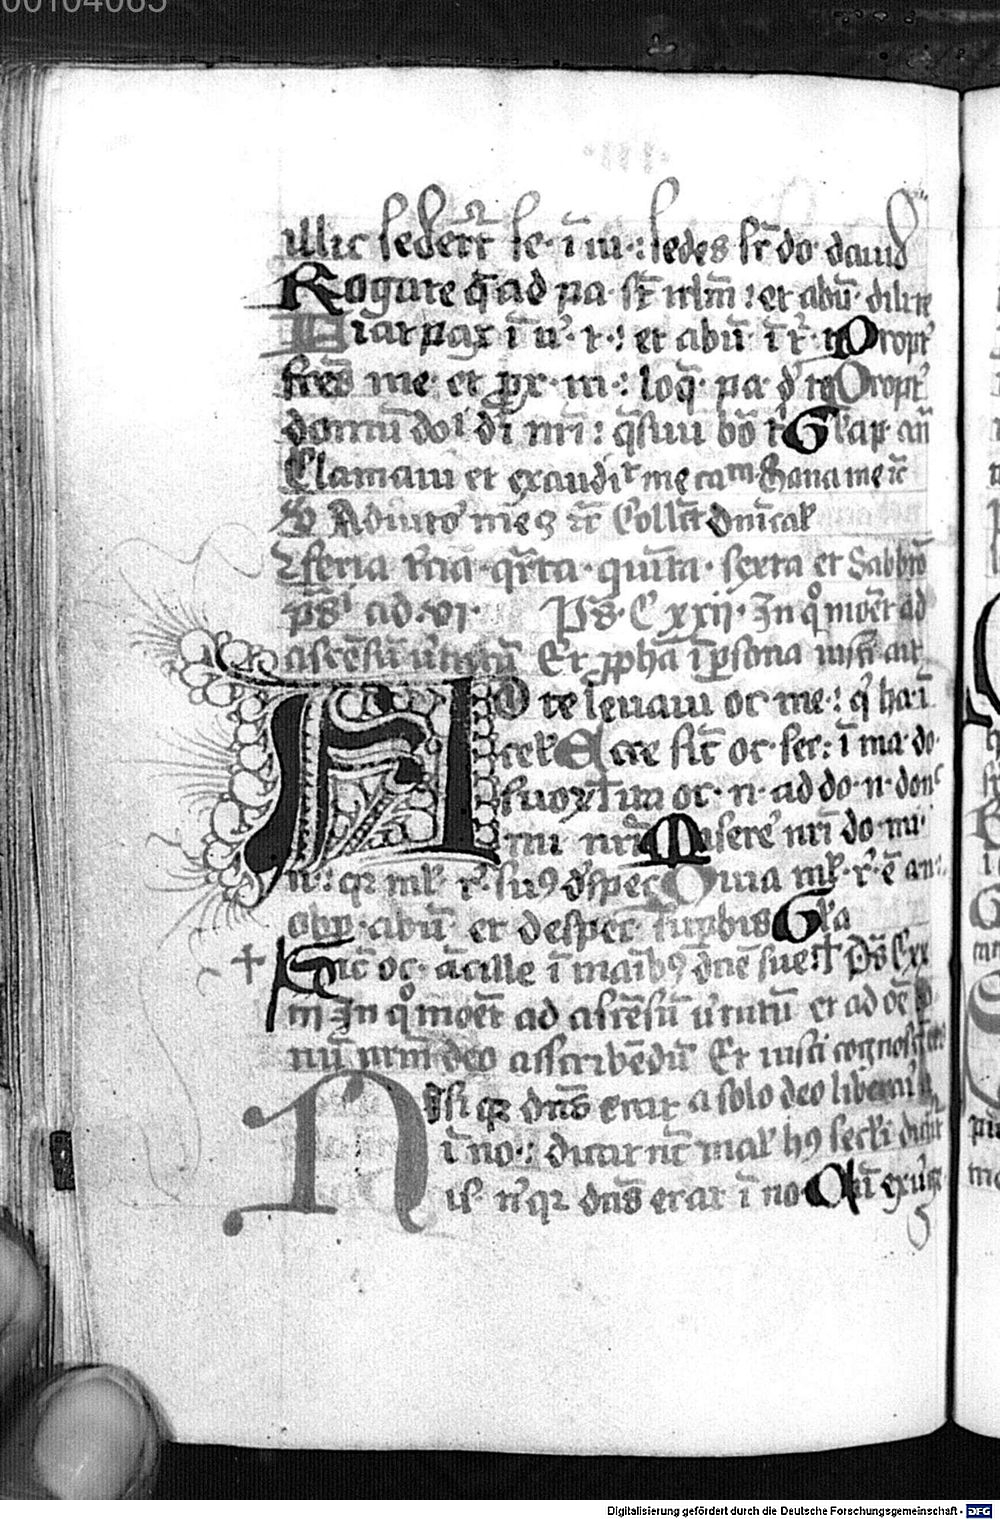 00104065
illic sederūt se· ī iu·: sedes sr̄ do· dauid
Rogate q̄ ad pa· st̄ irlm̄: et abū· dilite
Fiat pax ī u· t·: et abū· ī t̄· t Propt̾
frēs me· et ꝓx· m·: loq̄· pa· d' te Propt̾
domū do dī nr̄i: q̄siui bō t Gl'a p· an̄
Clamaui et exaudiᵗ me caᵐ. Sana me r̄c
Adiuto mē r̄c Collc̄t dnīcal'
feria t̄cia· qr̄ta· quīta· sexta et Sabbto
pš ad· vi· Pš· Cxxij· In qͦ mōet ad
ascēsū u̾tutū Et ꝓph̄a ī ꝑsona iusti ait
AD te leuaui oc· me·: q̾ ha· ī
cel' Ecce sic̄ oc· ser: ī ma· do·
suoꝝ Ita oc· n· ad do· n· donᶜ
mi· nr̄i Misere· nr̄i do· mi·
n·: qꝛ ml' r· sumꝰ despec̄ Quia ml'· r· ē an·:
obp· abū· et despec̄· supbis Gl'a
† Sic̄ oc· ācille ī maībꝰ dn̄e sue: † Pš Cxx
iij In qͦ mōet ad ascēsū u̾tutū et ad oē
nū nrm̄ deo asscribēdū Et iusti cognosc̄
Nisi qꝛ dns̄ erat a solo deo liberati
ī no·: dicat nc̄ mal' hꝰ sec'li dicit
is· n· qꝛ dns̄ erat ī no· Cū exurg̾
Digitalisierung gefördert durch die Deutsche Forschungsgemeinschaft - DFG